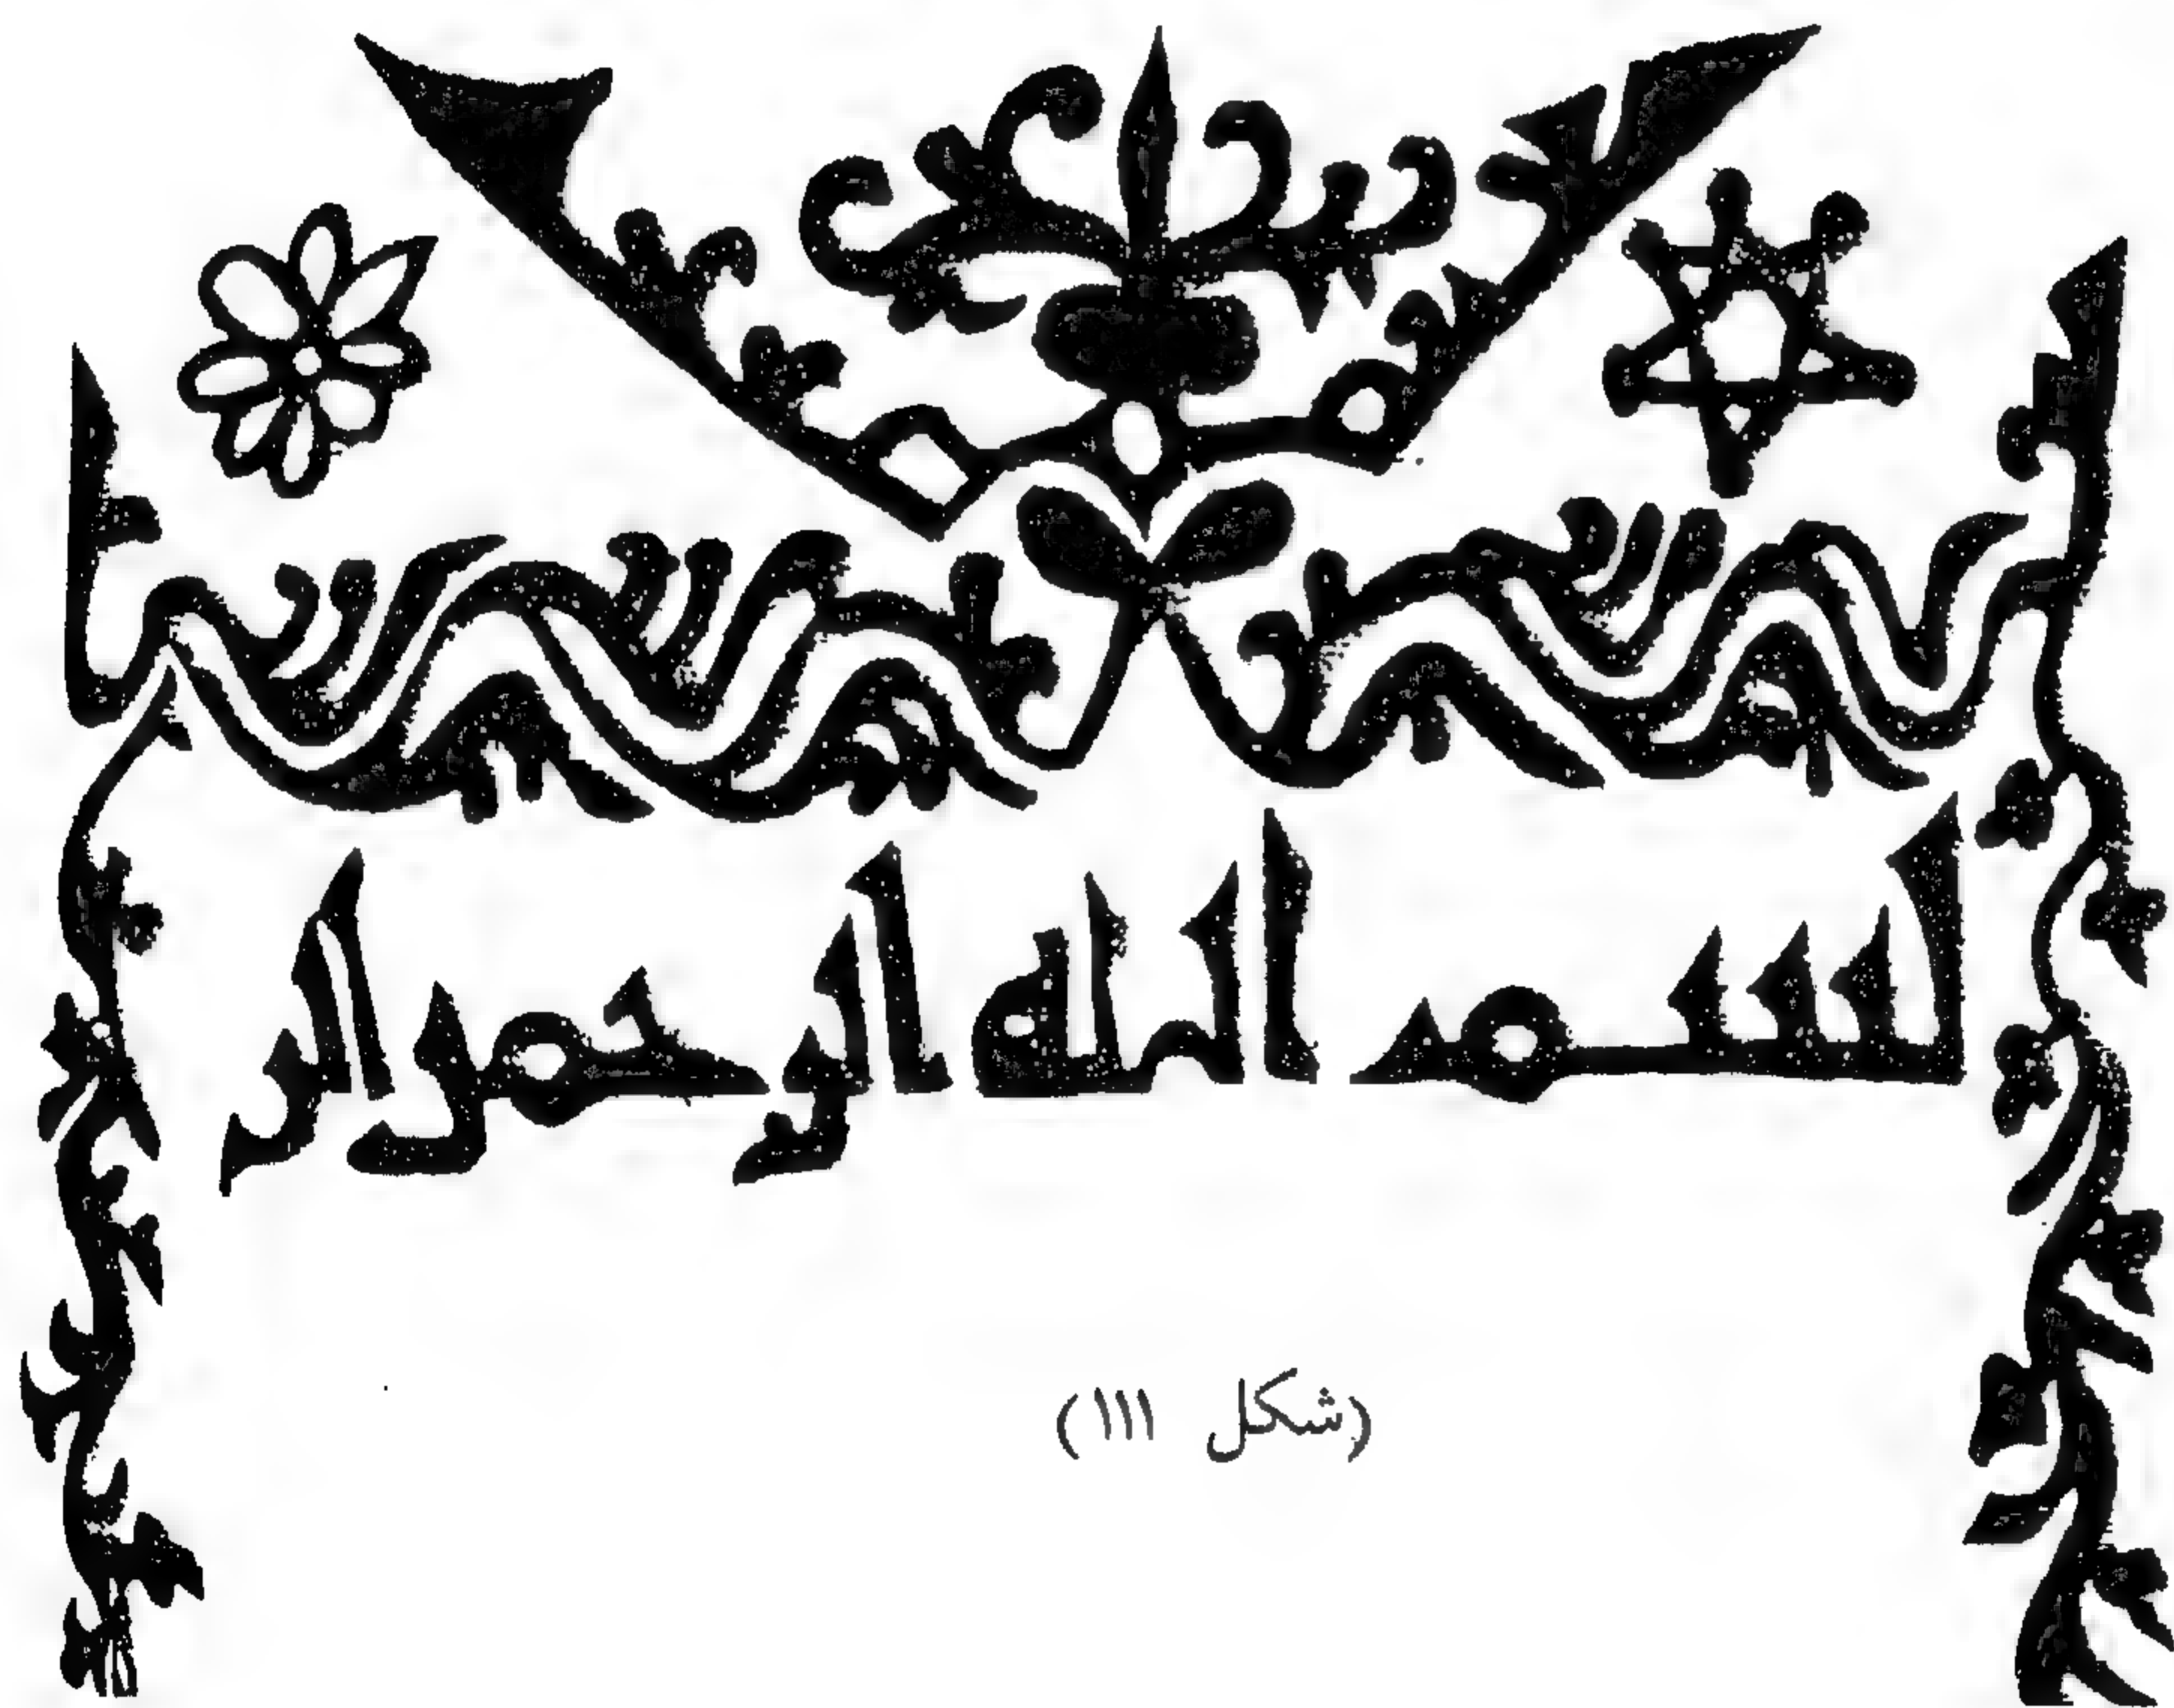 بسم الله الرحمن الر
(شكل ١١١)